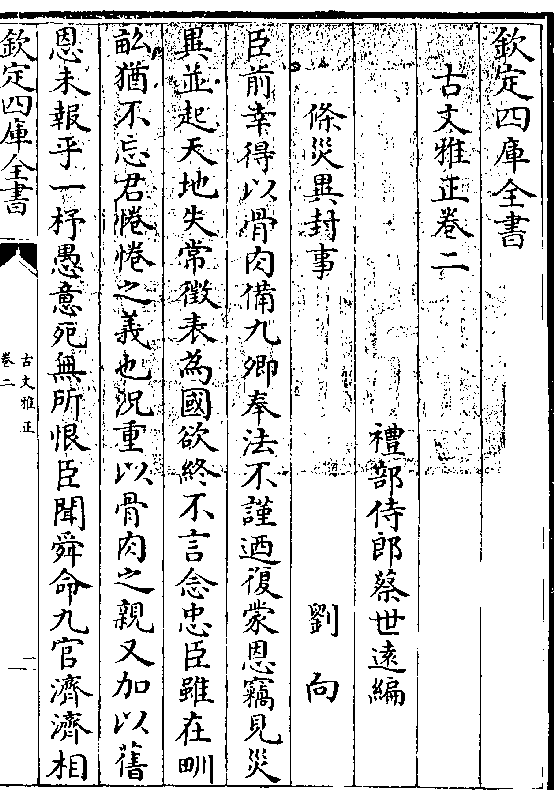 欽定四庫全書
古文雅正卷二
禮部侍郎蔡世遠編
條災異封事 劉向
臣前幸得以骨肉備九卿奉法不謹迺復蒙恩竊見災
異並起天地失常徵表為國欲終不言念忠臣雖在甽
畝猶不忘君惓惓之義也況重以骨肉之親又加以舊
恩未報乎一杼愚意死無所恨臣聞舜命九官濟濟相
欽定四庫全書
古文雅正
卷二
一